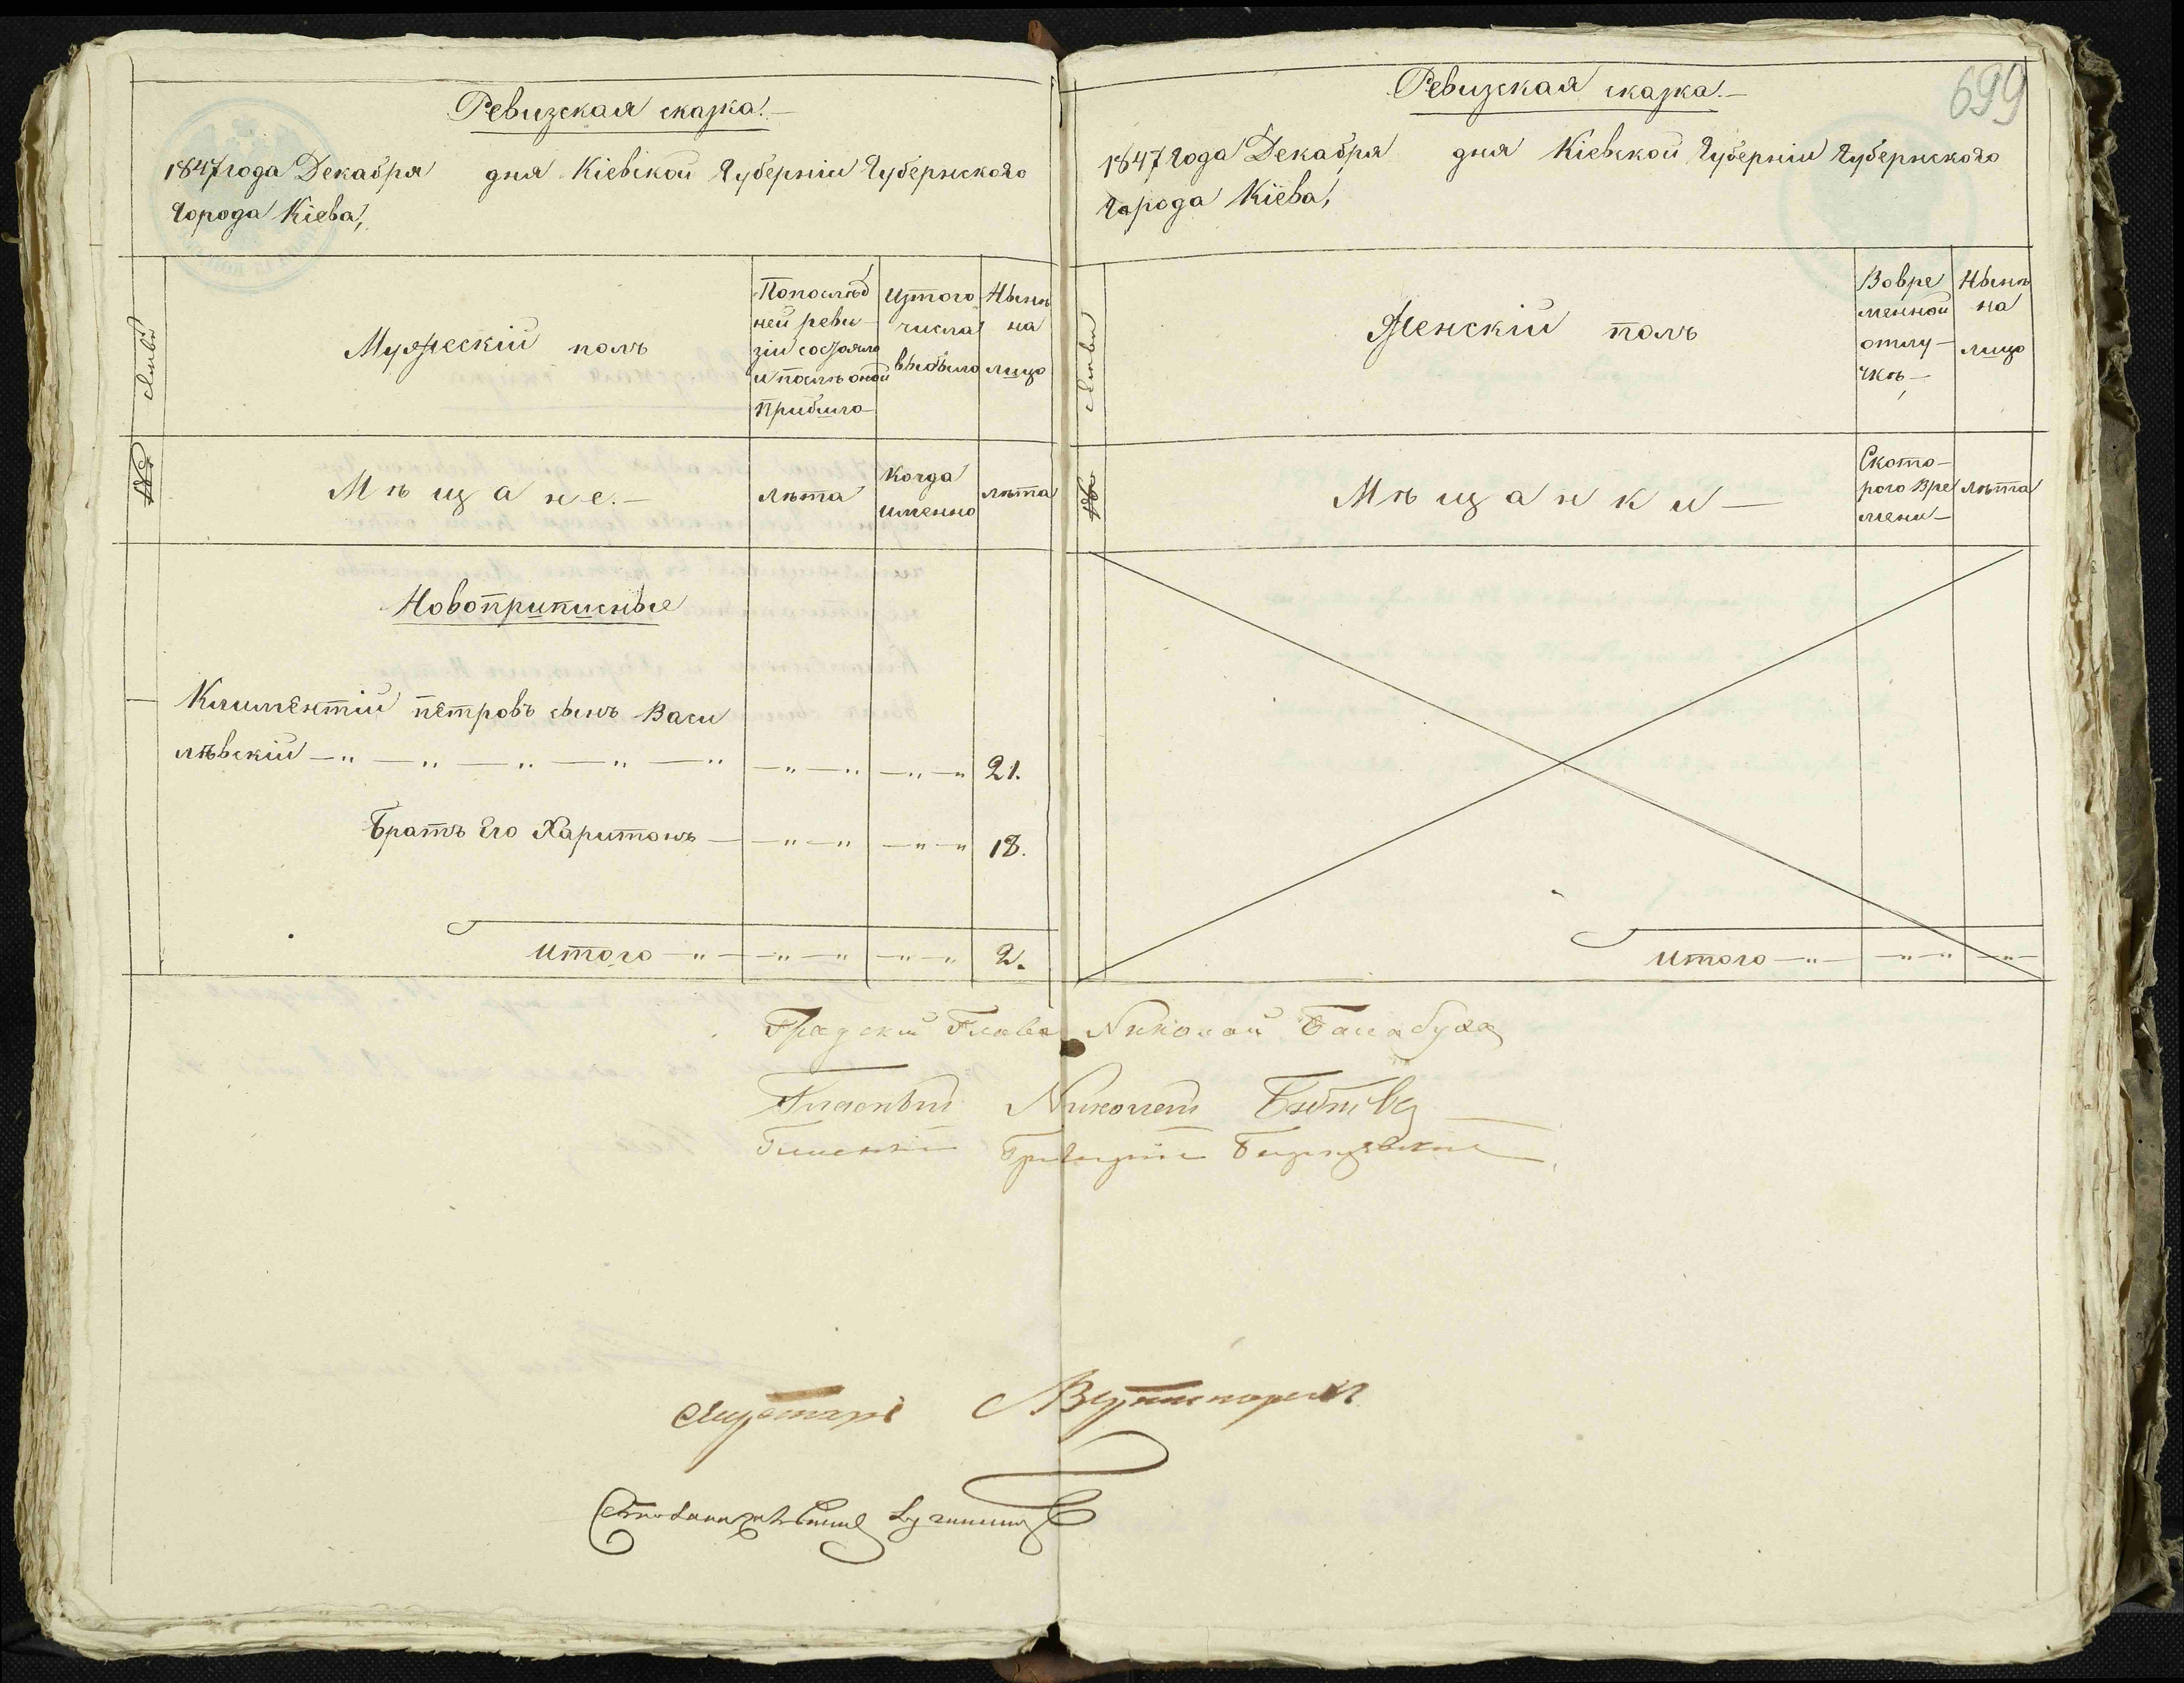 Ревизская сказка.—
1847 года Декабря дня Кіевской Губерніи Губернскаго
Города Кіева,
№ семьи
Мужескій полъ
Попослѣд
ней реви-
зіи состояло
и послѣ оной
прибыло
Изтого
числа
выбыло
Нынѣ
на
лицо
Мѣщане.—
лѣта
Когда
именно
лѣта
Новоприписные
Климентій петровъ сынъ Васи
лѣвскій —"— —"— —"— —"— —" —"—" —"—" 21.
Братъ Его Харитонъ — —"—" —"—" 18.
Итого —"— —"—" —"—" 2.
699
Ревизская сказка.—
1847 Года Декабря дня Кіевской Губерніи Губернскаго
Города Кіева,
№ семьи
Женскій полъ
Вовре
менной
отлу-
чкѣ—
Нынѣ
на
лицо
Мѣщанки—
Ското-
рого вре
мени—
лѣта
Итого —"— —"—" —"—
Градскій Глава Николай Балабуха
Гласный Николай
Гласный Григорій